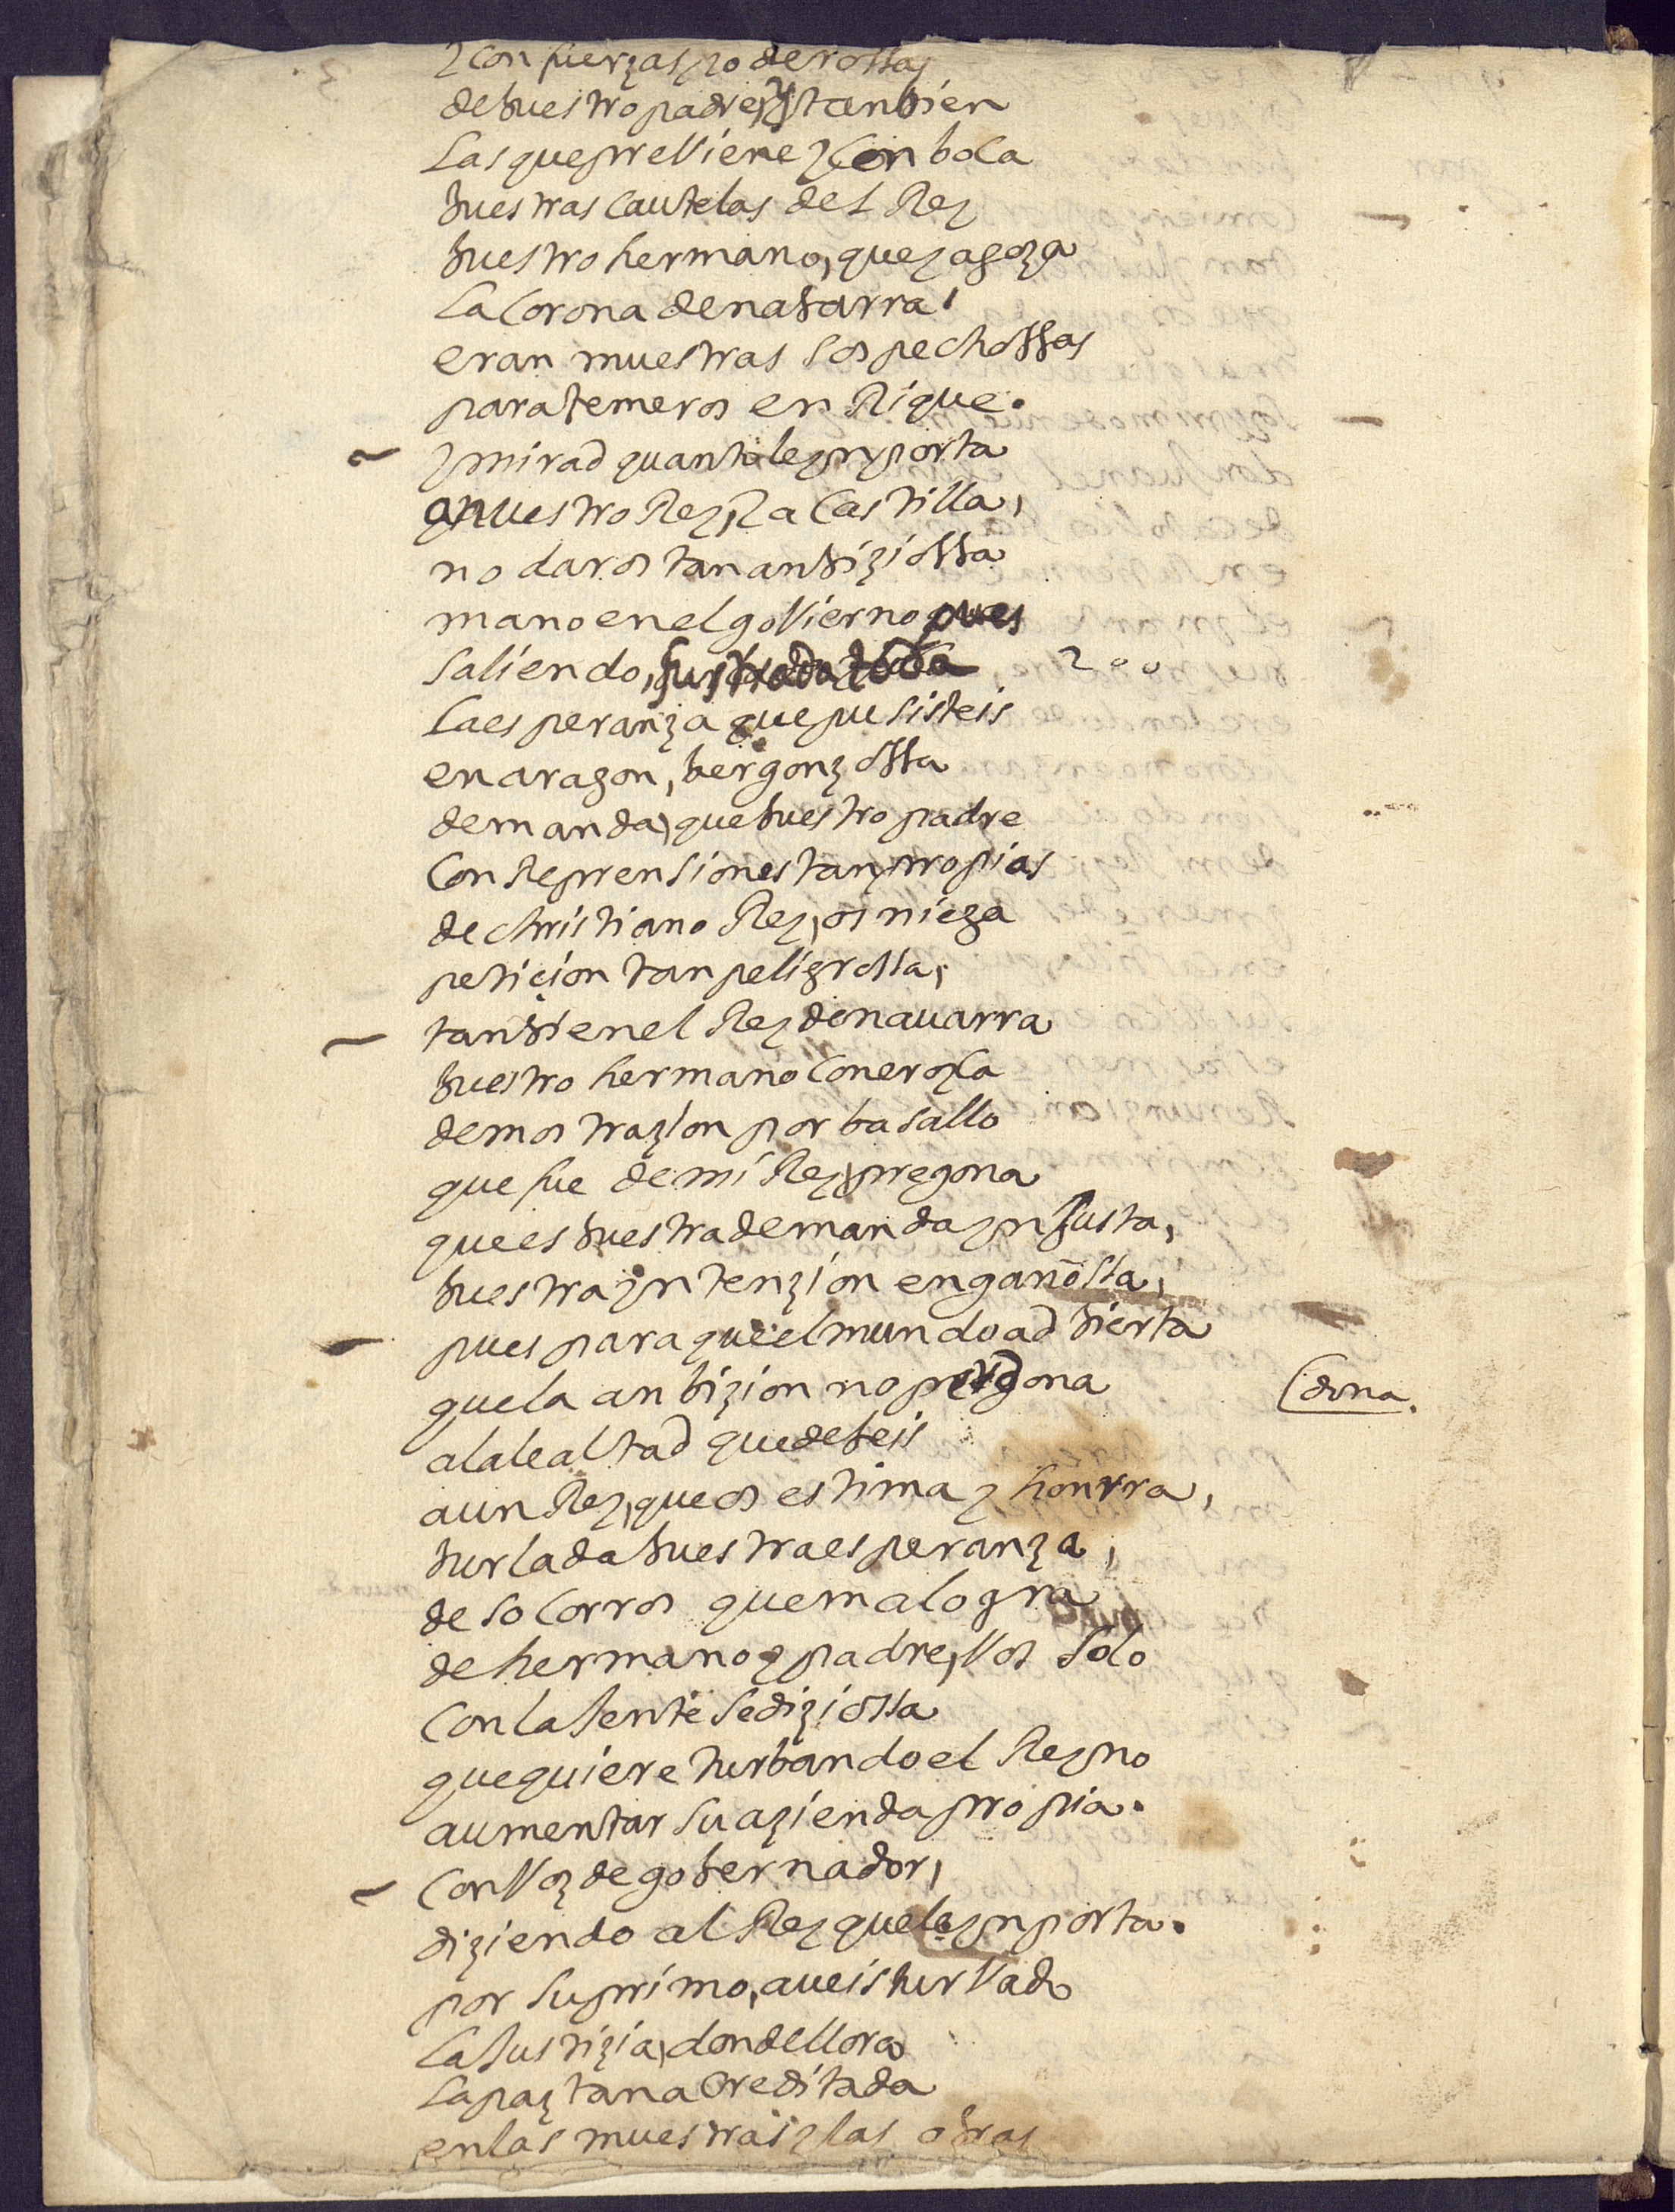 y con fuerzas poderossas
de buestro padre, y tanbien
las que previene y conboca
buestras cautelas del Rey
buestro hermano, que ya goza
la corona de nabarra,
eran muestras sospechossas
para temeros enRique.
y mirad quanto le ynporta
a nuestro Rey, y a Castilla,
no daros tan anbiziossa
mano en el govierno pues
saliendo, 200
la esperanza que pusisteis
en aragon, bergonzossa
demanda, que buestro padre
con Reprensiones tan propias
de christiano Rey, os niega
petiçion tan peligrossa,
tanbien el Rey de nauarra
buestro hermano con eroyca
demostrazion por basallo
que fue de mi Rey, pregona
que es buestra demanda ynJusta,
buestra yntenzion engañossa,
pues para que el mundo adbierta
que la anbizion no perdona (dona.
a la lealtad que debeis
a un Rey, que os estima y honrra,
burlada buestra esperanza,
de socorros que malogra
de hermano y padre, vos solo
con la Jente sediziossa
que quiere turbando el Reyno
aumentar su azienda propia.
con voz de gobernador,
diziendo al Rey que le ynporta.
por su primo, aueis turvado
la Justizia, donde llora
la paz tan acreditada
en las muestras y las obras